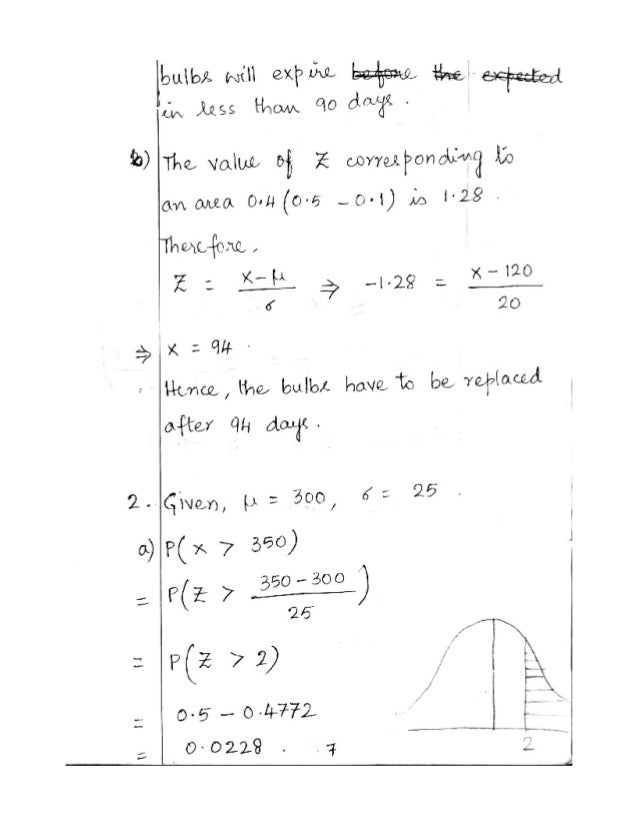 bulbs will expire before the expected
in less than 90 days.
b) The value of Z corresponding to
an area 0.4 (0.5 - 0.1) is 1.28.
Therefore,
Z = X-μ/σ ⇒ -1.28 = X-120/20
⇒ X = 94.
Hence, the bulbs have to be replaced
after 94 days.
2. Given, μ = 300, σ = 25.
a) P(x > 350)
= P(Z > 350-300/25)
= P(Z > 2)
= 0.5 - 0.4772
= 0.0228. 7
2